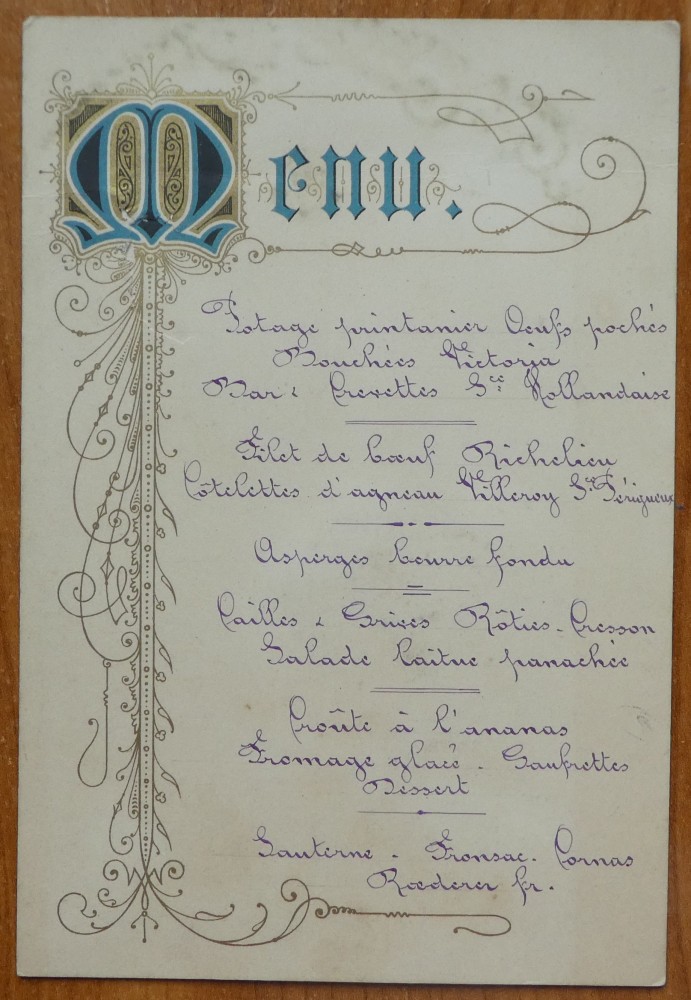 Menu.
Potage printanier Oeufs pochés
Bouchées Victoria
Bar & Crevettes Sce Hollandaise
Filet de boeuf Richelieu
Côtelettes d'agneau Villeroy Sce Périgueux
Asperges beurre fondu
Cailles & Grives Rôties - Cresson
Salade laitue panachée
Croûte à l'ananas
Fromage glacé - Gaufrettes
Dessert
Sauterne - Fronsac - Cornas
Rœderer fr.